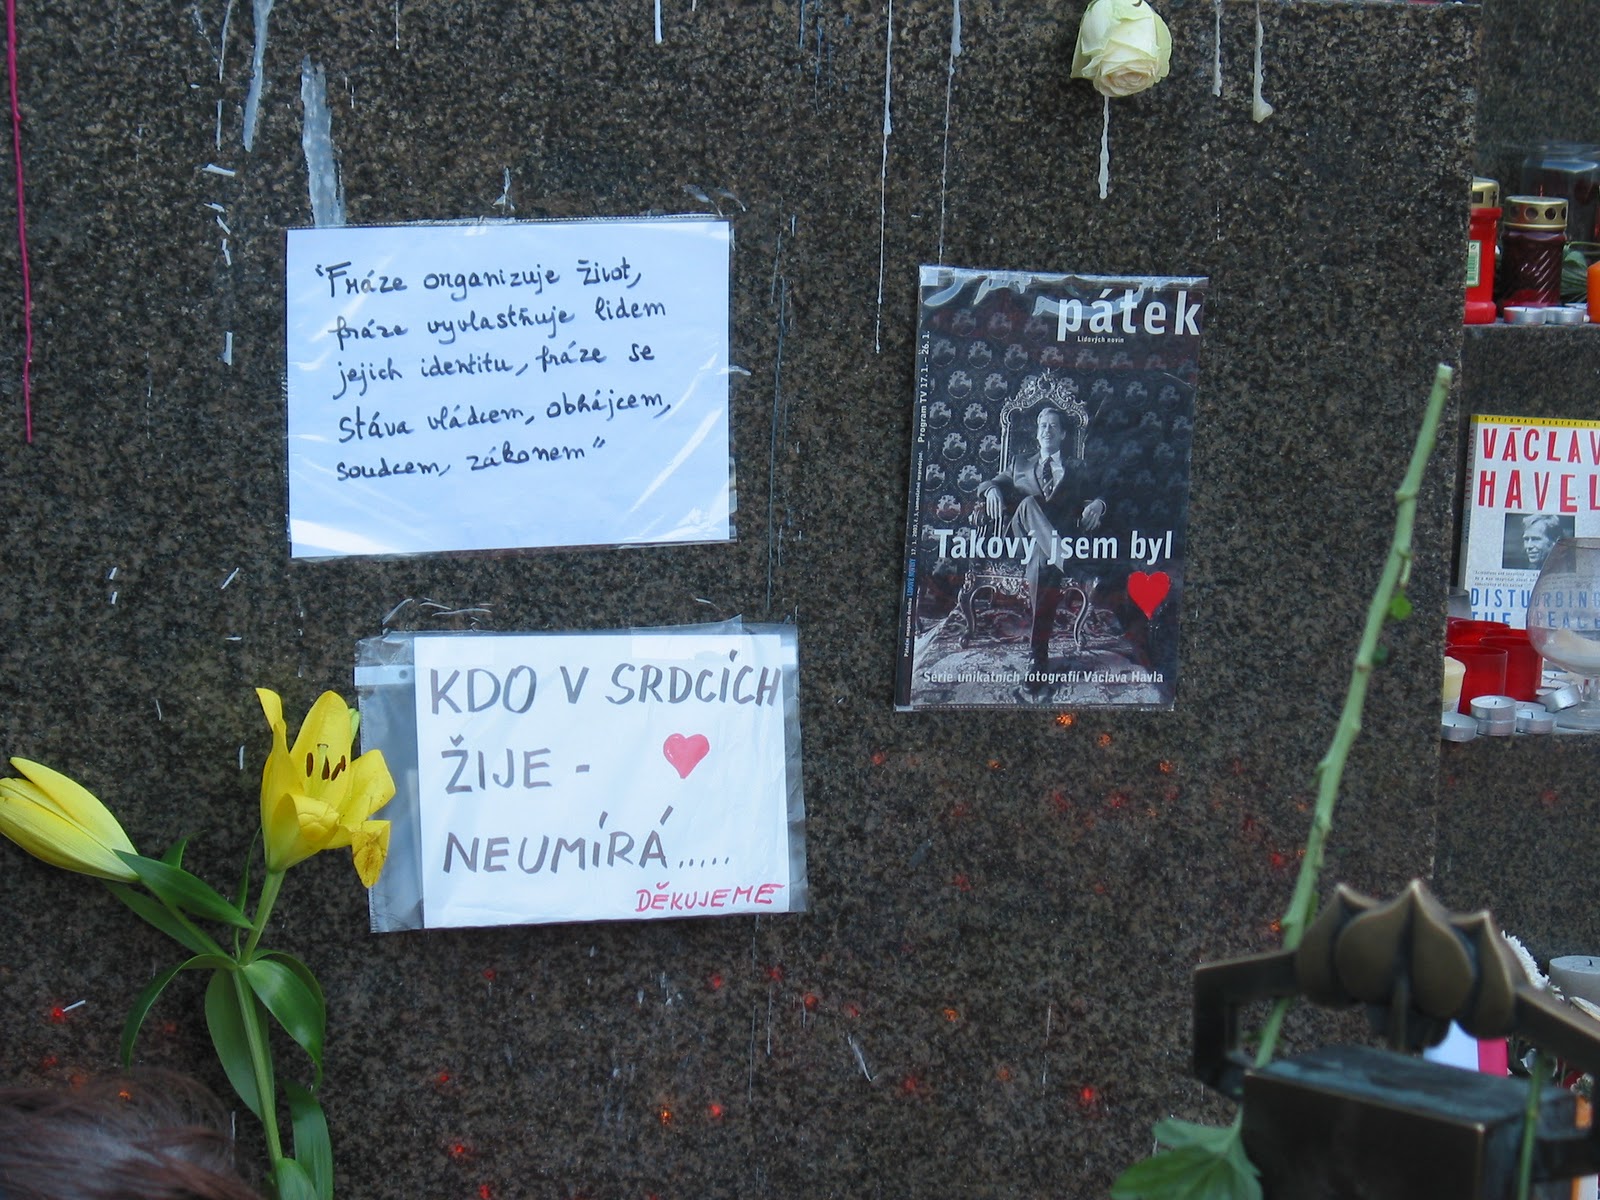 "Fráze organizuje život,
fráze vyvlastňuje lidem
jejich identitu, fráze se
stává vládcem, obhájcem,
soudcem, zákonem"
KDO V SRDCÍCH
ŽIJE -
NEUMÍRÁ.....
DĚKUJEME
pátek
Lidových novin
Program TV 17.1. – 26.1.
Takový jsem byl
Série unikátních fotografií Václava Havla
NATIONAL BESTSELLER
VÁCLAV
HAVEL
DISTURBING
THE PEACE